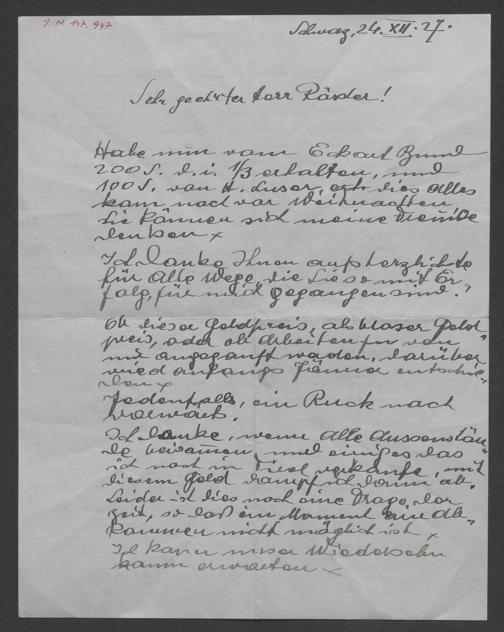 J.N. 147.947
Schwaz, 24. XII. 27.
Sehr geehrter Herr Röder!
Habe nun vom Eckart Bund
200 S. d. i. 1/3 erhalten, und
100 S. von H. Luser, dies Alles
kam noch vor Weihnachten
Sie können sich meine Freude
denken x
Ich danke Ihnen aufs herzlichste
für alle Wege, die Sie so mit Er-
folg, für mich gegangen sind.
Ob dieser Geldpreis, als bloser Geld-
preis, oder ob Arbeiten von
mir angekauft werden, darüber
wird anfangs Jänner entschie-
den x
Jedenfalls, ein Ruck nach
vorwärts.
Ich danke, wenn alle Aussenstän-
de und einiges das
ich noch in Tirol verkaufe, mit
diesem Geld dampf ich dann ab.
Leider ist dies noch eine Frage der
Zeit, so daß im Moment ein Ab-
kommen nicht möglich ist x
Ich kann unser Wiedersehn
kaum erwarten x